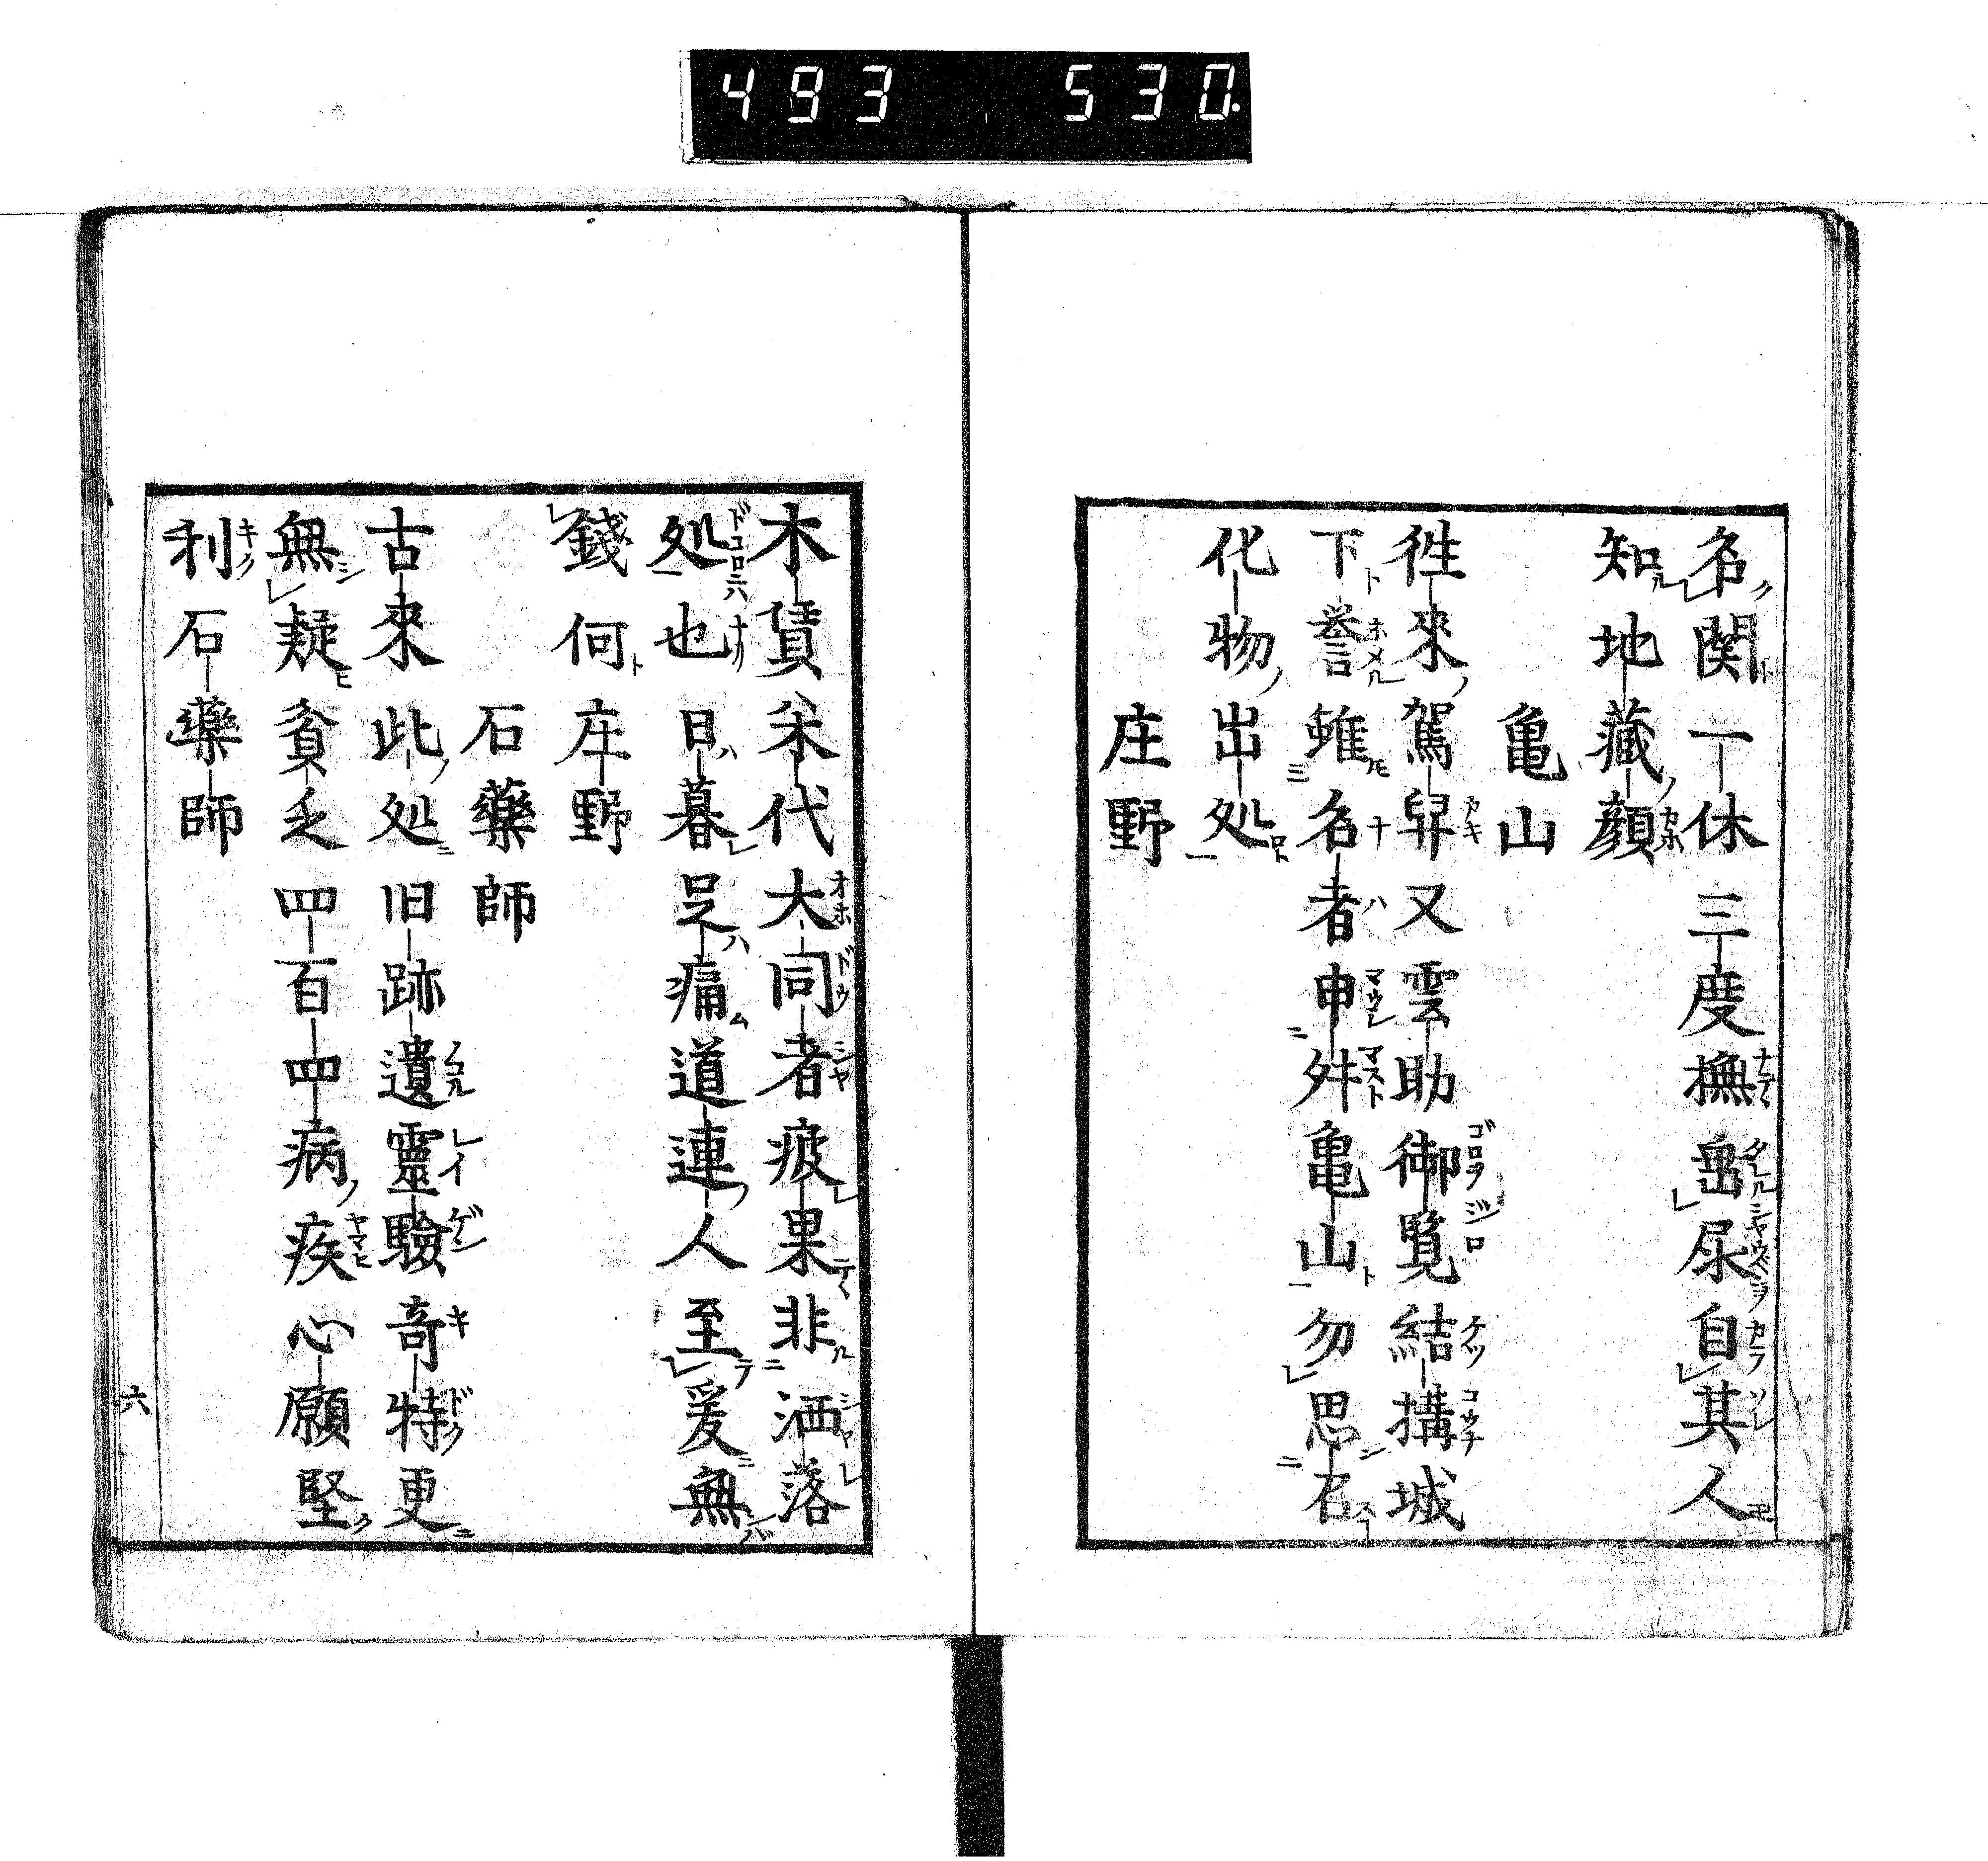 493 530.
名関一休三度撫𡿺尿自其人
知地藏顔
亀山
徃來駕舁又雲助御覧結搆城
下誉雖名者申舛亀山勿思召
化物出処
庄野
木賃米代大同者疲果非洒落
処也日暮足痛道連人至爰無
錢何庄野
石藥師
古來此処旧跡遺靈驗竒特更
無疑貧乏四百四病疾心願堅
利石藥師
六